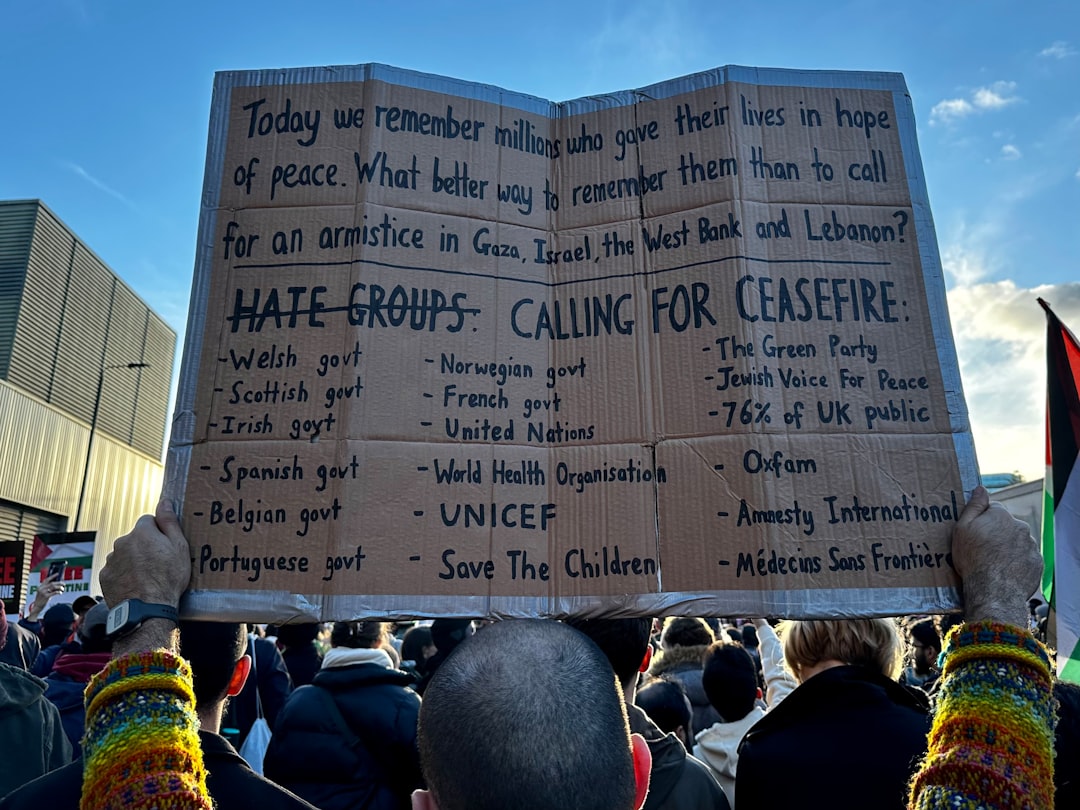 Today we remember millions who gave their lives in hope
of peace. What better way to remember them than to call
for an armistice in Gaza, Israel, the West Bank and Lebanon?
HATE GROUPS: CALLING FOR CEASEFIRE:
- Welsh govt
- Scottish govt
- Irish govt
- Spanish govt
- Belgian govt
- Portuguese govt
- Norwegian govt
- French govt
- United Nations
- World Health Organisation
- UNICEF
- Save The Children
- The Green Party
- Jewish Voice For Peace
- 76% of UK public
- Oxfam
- Amnesty International
- Médecins Sans Frontière